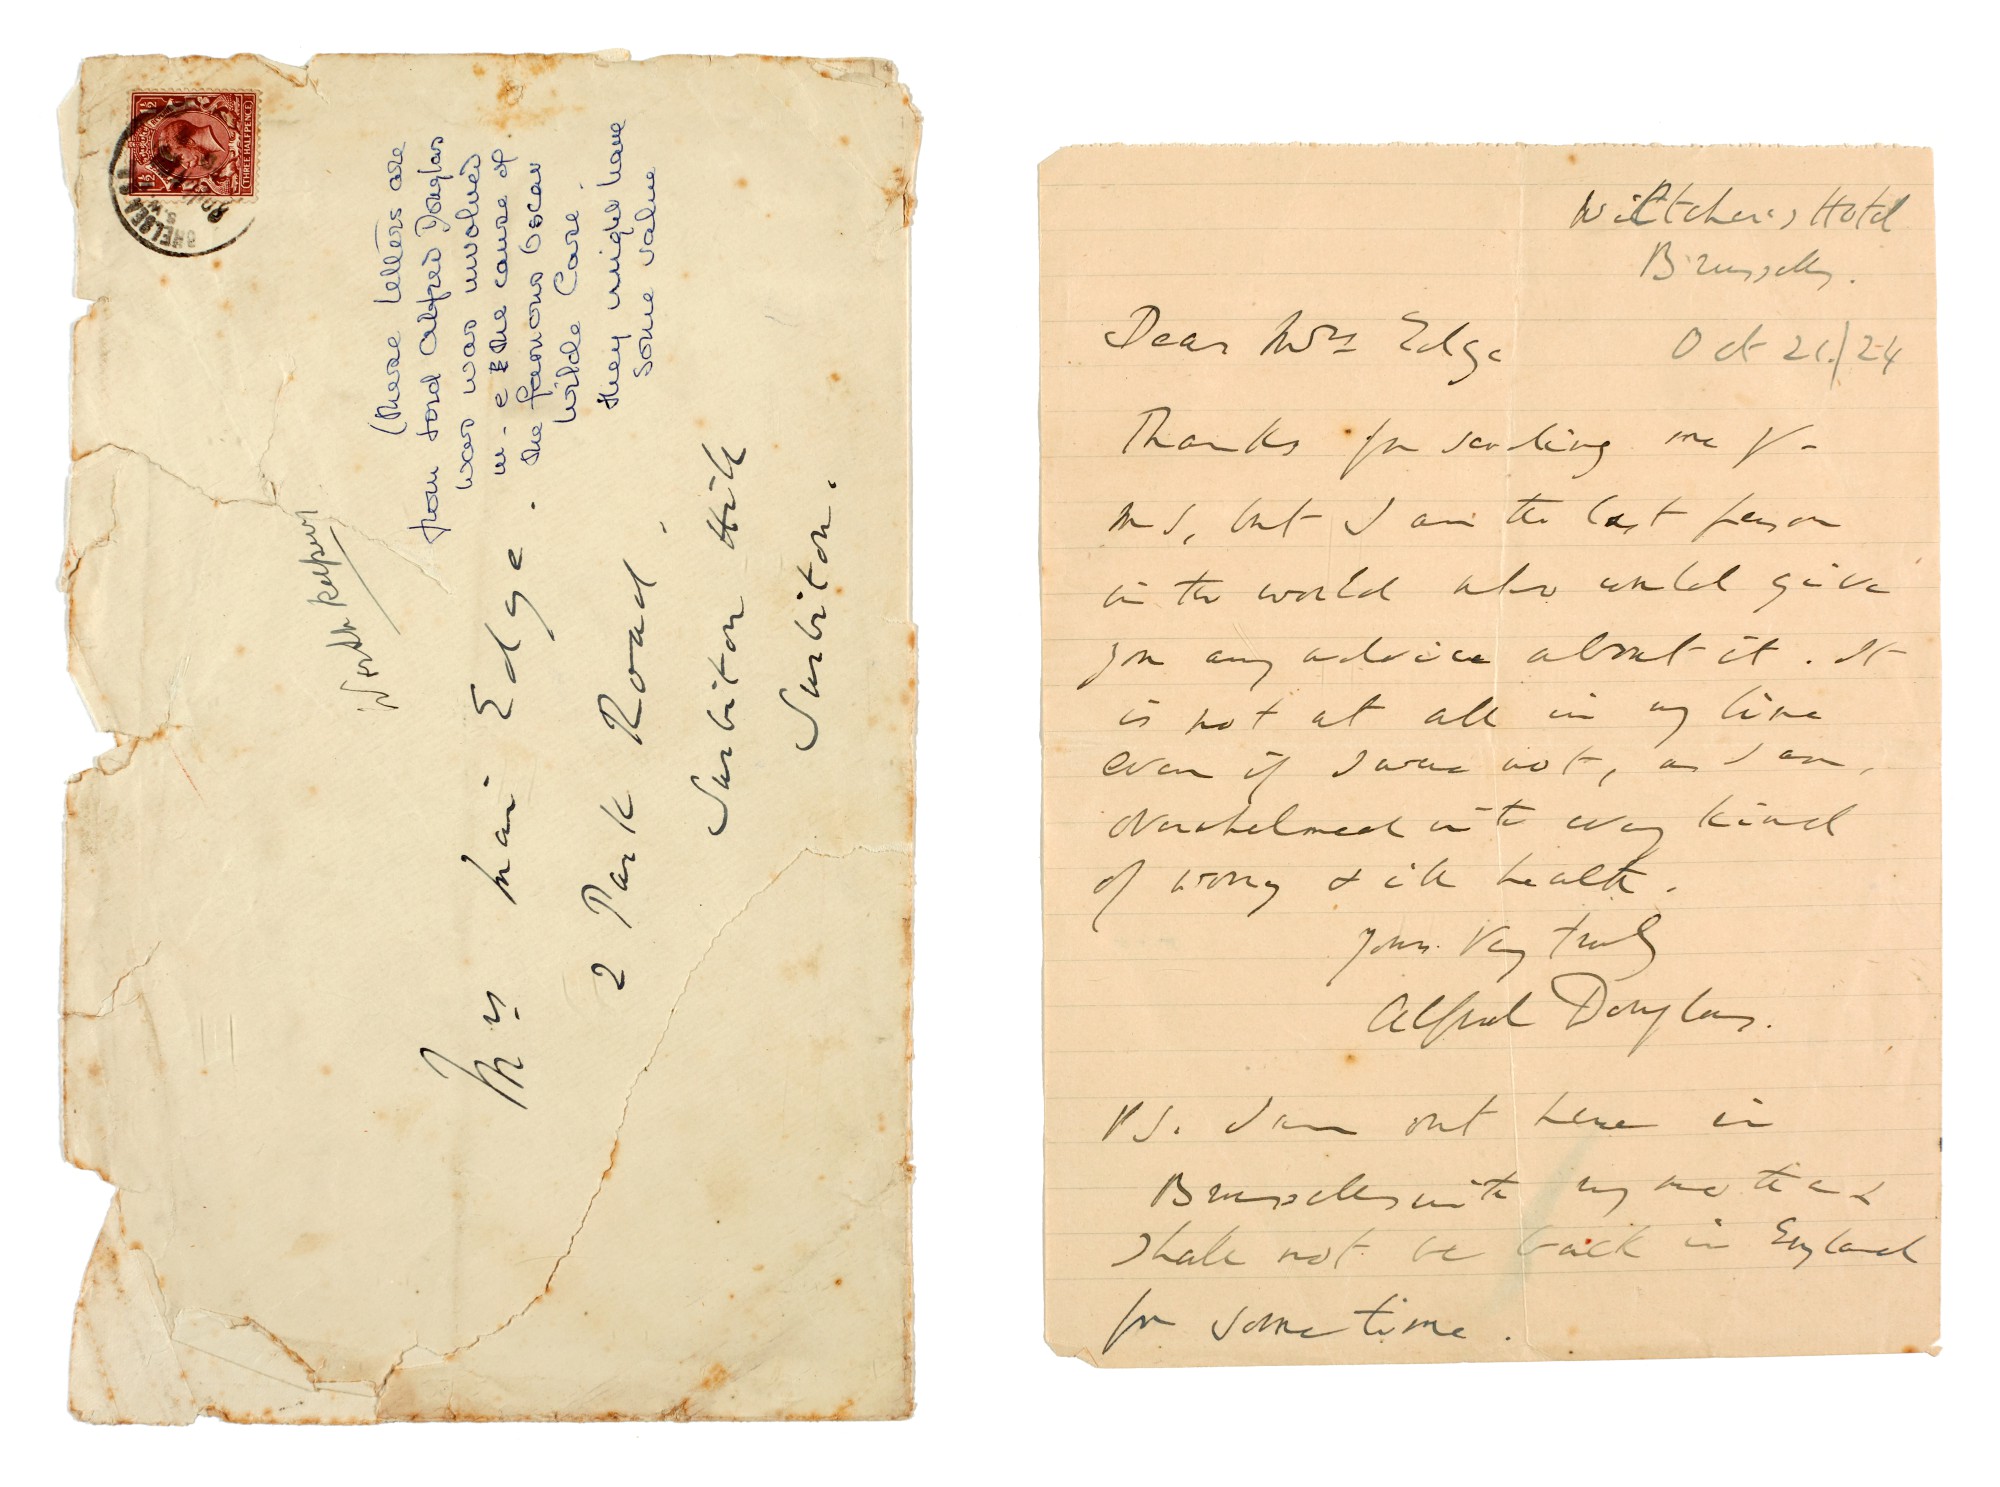 THREE HALFPENCE
1½
1½
CHELSEA
S.W.
(These letters are
from Lord Alfred Douglas
was was involved
in - e the cause of
the famous Oscar
Wilde Case.
they might have
some value
Worth keeping
Mrs Edge.
2 Park Road.
Surbiton Hill
Surbiton.
Wiltcher's Hotel
Brussels.
Dear Mrs Edge
Oct 21/24
Thanks for sending me yr
MS, but I am the last person
in the world who would give
you any advice about it. It
is not at all in my line
even if I were not, as I am,
overwhelmed with every kind
of worry & ill health.
Yours very truly
Alfred Douglas.
PS. I am out here in
Brussels with my mother &
shall not be back in England
for some time.